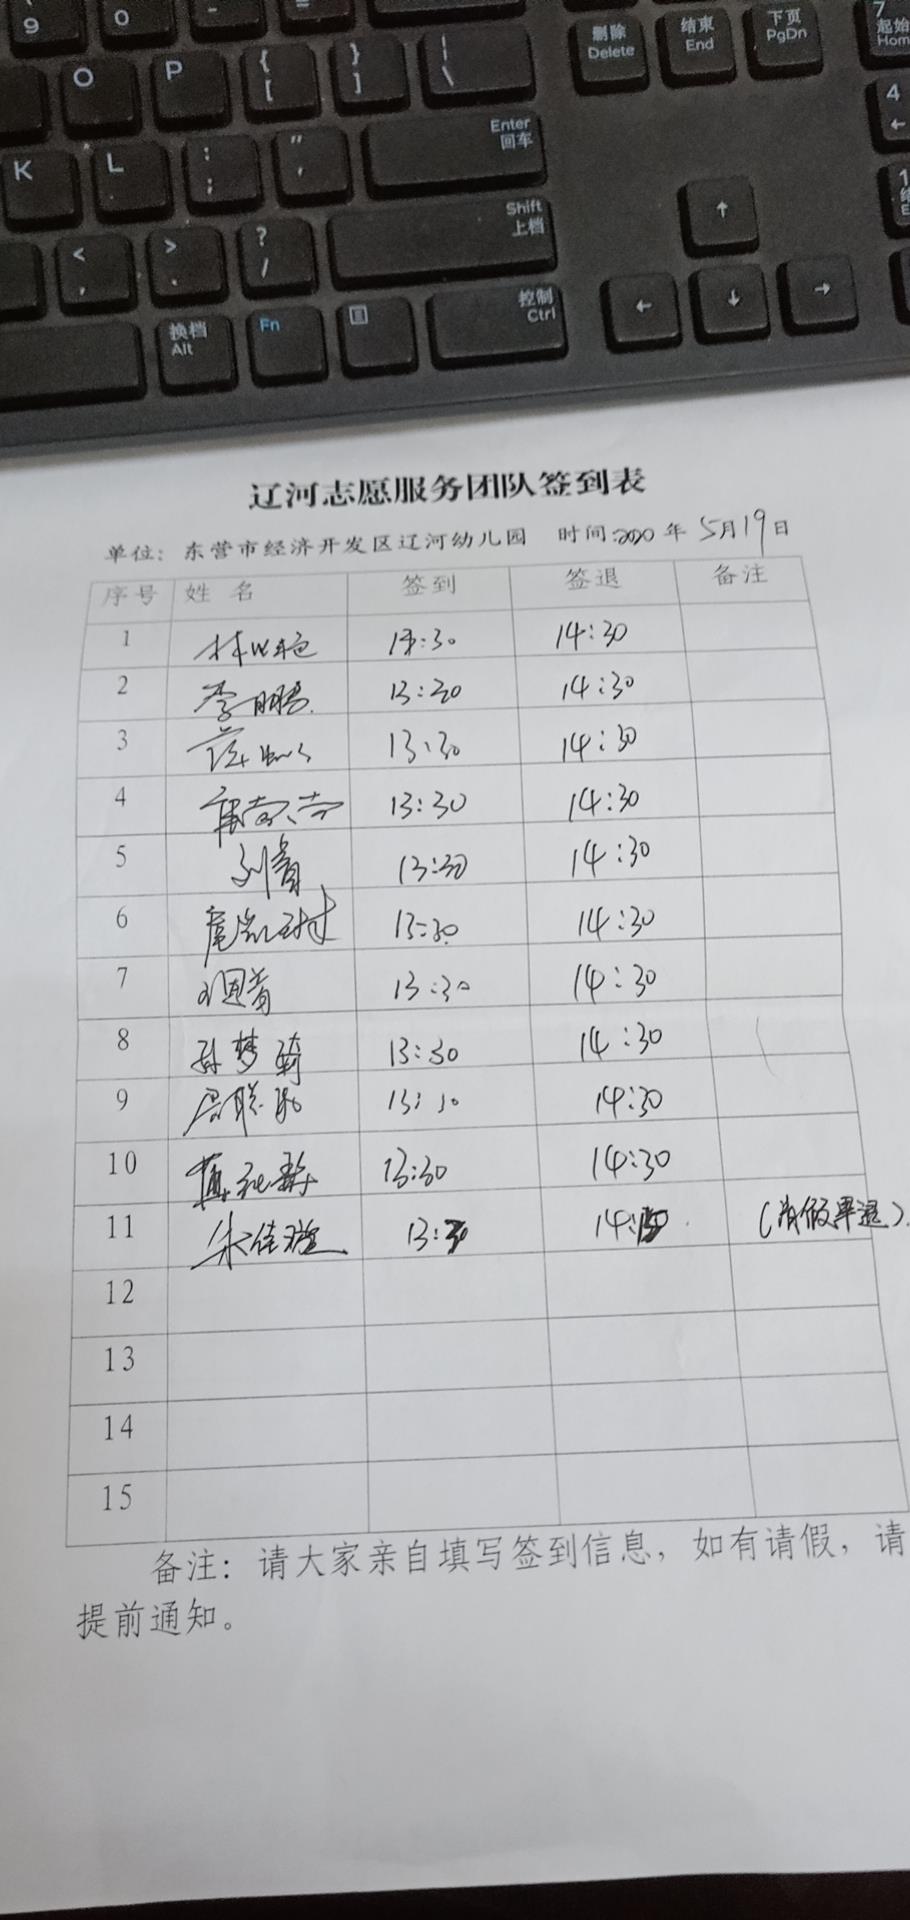 9
0
-
=
删除 Delete
结束 End
下页 PgDn
7 起始 Home
O
P
{ [
} ]
| \
4 ←
K
L
: ;
" '
Enter 回车
1
< ,
> .
? /
Shift 上档
↑
换档 Alt
Fn
控制 Ctrl
← ↓ →
辽河志愿服务团队签到表
单位：东营市经济开发区辽河幼儿园 时间:2020 年 5月19日
序号 姓 名 签到 签退 备注
1 13:30 14:30
2 李鹏 13:30 14:30
3 13:30 14:30
4 13:30 14:30
5 刘青 13:30 14:30
6 13:30 14:30
7 13:30 14:30
8 孙梦琦 13:30 14:30
9 13:30 14:30
10 13:30 14:30
11 朱佳璇 13:30 (请假早退)
12
13
14
15
备注：请大家亲自填写签到信息，如有请假，请
提前通知。